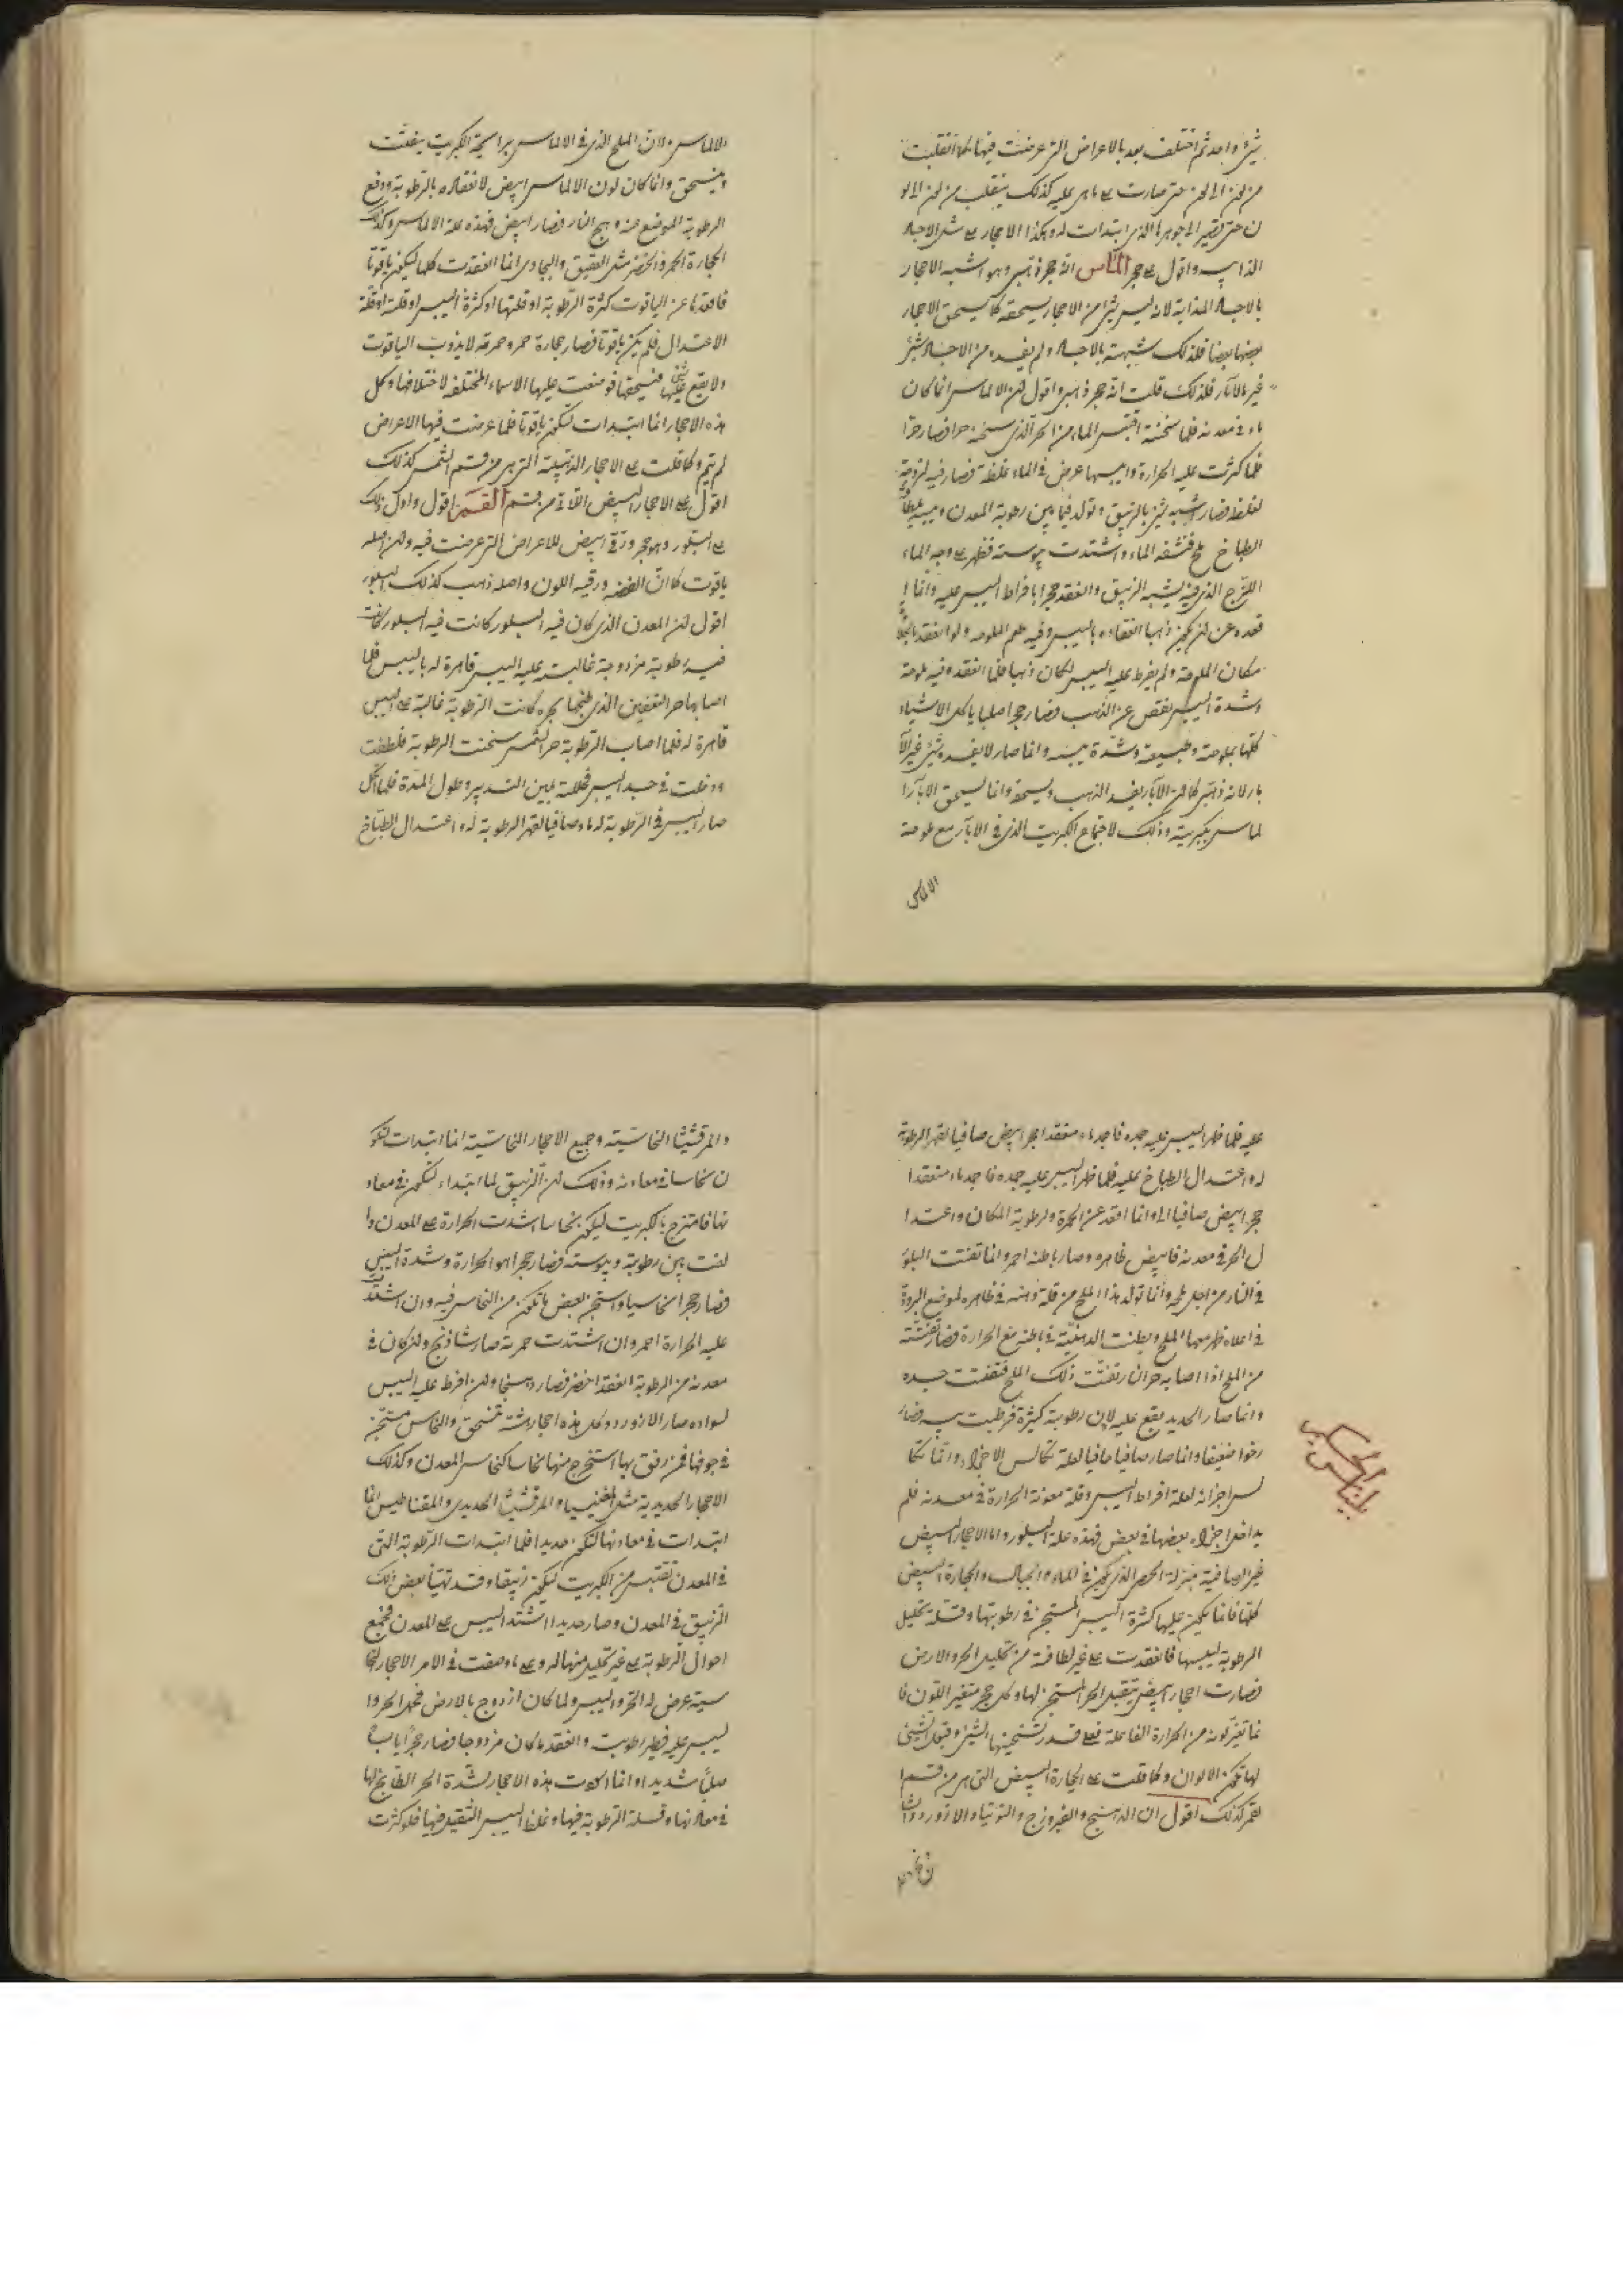 شئ واحد ثم اختلف بعد بالاعراض التى عرضت فيها كما انقلبت
من لون الى لون حتى صارت على ما هى عليه كذلك ينقلب من لون الى لو
ن حتى تصير الى جوهرها الذى ابتدات له وهكذا الاحجار على مثل الاجساد
الذايبة واقول على حجر الماس انه حجر ذهبى وهو اشبه الاحجار
بالاجساد المذابة لانه ليس شئ من الاحجار يسحقه كما يسحق الاحجار
بعضها بعضا فلذلك شبهته بالاجساد ولم يفسده من الاجساد شئ
غير الابار فلذلك قلت انه حجر ذهبى واقول ان الالماس انما كان
ماء فى معدنه فلما سخنته اقتبس الماء من الحر الذى سخنه حرا فصار حرا
فلما كثرت عليه الحرارة وايبسها عرض فى الماء غلظ فصار فيه لزوجة
لغلظه فصار اشبه شئ بالزيبق وتولد فيما بين رطوبة المعدن ويبسه
الطباخ ملح فنشفه الماء واشتدت يبوسته فظهر على وجه الماء
اللزج الذى فيه يشبه الزيبق وانعقد حجرا بافراط اليبس عليه وانما ا
قعده عن ان يكون ذهبا انعقاده باليبس وفيه طعم الملوحه ولو انعقد
مكان الملوحة ولم يفرط عليه اليبس لكان ذهبا فلما انعقد وفيه ملوحة
وشدة اليبس نقص عن الذهب فصار حجرا صلبا ياكل الاشياء
كلها بملوحته وطبيعته وشدة يبسه وانما صار لا يفسده شئ غير الا
بار لانه ذهبى كما ان الابار يفسد الذهب ويسحقه وانما يسحق الابار ا
لماس بكبريته وذلك لاجتماع الكبريت الذى فى الابار مع ملوحة
الالماس
الالماس ولان الملح الذى فى الالماس برايحة الكبريت يتفتت
وينسحق وانما كان لون الالماس ابيض لانعقاده بالرطوبة ودفع
الرطوبة الموضع عنه وهج النار فصار ابيض فهذه علة الالماس وكذلك
الحجارة الحمر والخضر مثل العقيق والبجادى انما انعقدت كلها ليكون ياقوتا
فاقعدها عن الياقوت كثرة الرطوبة او قلتها او كثرة اليبس او قلته او قلة
الاعتدال فلم يكن ياقوتا فصار حجارة حمر وحمرته لا يذوب الياقوت
ولا يقع عليها شئ فيسحقها فوضعت عليها الاسماء المختلفه لاختلافها وكل
هذه الاحجار انما ابتدات لتكون ياقوتا فلما عرضت فيها الاعراض
لم يتم وكما قلت على الاحجار الذهبية التى هى من قسم الشمس كذلك
اقول على الاحجار البيض اللاتى من قسم القمر اقول واول ذلك
على البلور وهو حجر ورقى ابيض للاعراض التى عرضت فيه ولان اصله
ياقوت كما ان الفضه ورقيه اللون واصله ذهب كذلك البلور
اقول ان المعدن الذى كان فيه البلور كانت فيه البلور كانت
فيه رطوبة مزدوجة غالبت عليه اليبس قاهرة له باليبس فلما
اصابها حر التعفين الذى طبخها بحره كانت الرطوبة غالبة على اليبس
قاهرة له فلما اصاب الرطوبة حر الشمس سخنت الرطوبة فلطفت
ودخلت فى جسد اليبس فحللته بلين التدبير وطول المدة فلما انحل
صار اليبس فى الرطوبة له ماء وصافيا لقهر الرطوبة له واعتدال الطباخ
عليه فلما ظهر اليبس عليه جمده فاجمد ماء منعقدا حجر ابيض صافيا لقهر الرطوبة
له واعتدال الطباخ عليه فلما ظهر اليبس عليه جمده فاجمد ماء منعقدا
حجر ابيض صافيا الماء وانما اقعد عن الحمرة ولرطوبة المكان واعتدا
ل الحر فى معدنه فابيض ظاهره وصار باطنه احمر وانما تفتت البلور
فى النار من اجل ملحه وانما تولد هذا الملح من قلة دهنه فى ظاهره لموضع البرودة
فى اعلاه ظهر معها الملح وبطنت الدهنية فى باطنه مع الحرارة فصار تفتته
من الملح اذا اصابه حر النار تفتت ذلك الملح فتفتت جسده
وانما صار الحديد يقع عليه لان رطوبة كثيرة فرطبت يبسه فصار
رخوا ضعيفا وانما صار صافيا صافيا لعلة تكالس الاجزاء وانما تكا
لس اجزائه لعلة افراط اليبس وقلة معونة الحرارة فى معدنه فلم
يداخل اجزاء بعضها فى بعض فهذه علة البلور واما الاحجار البيض
غير الصافية بمنزلة الحصى الذى يكون فى الماء والجبال والحجارة البيض
كلها فانما يكون عليها كثرة اليبس المستجن فى رطوبتها وقلة تحليل
الرطوبة ليبسها فانعقدت على غير لطافة من تحليل الحر والارض
فصارت احجار ابيض بتقبل الحر المستجن لها وكل حجر متغير اللون فا
نما تغير لونه من الحرارة الفاعلة فعلى قدر تسخينها الشئ وقبول الشئ
لها تكون الالوان وكما قلت على الحجارة البيض التى هى من قسم ا
لقمر كذلك اقول ان الدهنج والفيروزج والتوتيا واللازورد
والمرقشيثا النحاسية وجميع الاحجار النحاسية انما ابتدات لتكو
ن نحاسا فى معادنه وذلك ان الزيبق لما ابتداء لتكون فى معاد
نها فامتزج بالكبريت ليكون نحاسا اشتدت الحرارة على المعدن وا
لفت بين رطوبة ويبوسته فصار حجر اهو الحرارة وشدة اليبس
فصار حجرا نحاسيا واستجن بعض ما تكون من النحاس فيه وان اشتدت
عليه الحرارة احمر وان اشتدت حمرته صار شاذنج وان كان فى
معدنه من الرطوبة انعقد اخضر فصار دهنجا وان افرط عليه اليبس
لسواده صار الازورد وكل هذه احجار هشة تنسحق والنحاس مستجن
فى جوفها فمن رفق بها استخرج منها نحاسا كنحاس المعدن وكذلك
الاحجار الحديدية مثل المغنيسيا والمرقشيثا الحديدى والمقناطيس انما
ابتدات فى معادنها لتكون حديدا فلما ابتدات الرطوبة التى
فى المعدن تقتبس من الكبريت ليكون زيبقا وقد تهيا بعض ذلك
الزيبق فى المعدن وصار حديدا اشتد اليبس على المعدن فجمع
احوال الرطوبة على غير تحليل منها له وعلى ما وصفت فى الامر الاحجار النحا
سية عرض له الحر واليبس ولما كان ازدوج بالارض فحمل الحر وا
ليبس عليه رطوبته وانعقد ما كان مزدوجا فصار حجرا يابسا
صلبا شديدا وانما اسودت هذه الاحجار لشدة الحر الطابخ لها
فى معادنها وقلة الرطوبة فيها وغلظ اليبس الثقيل فيها فلو كثرت